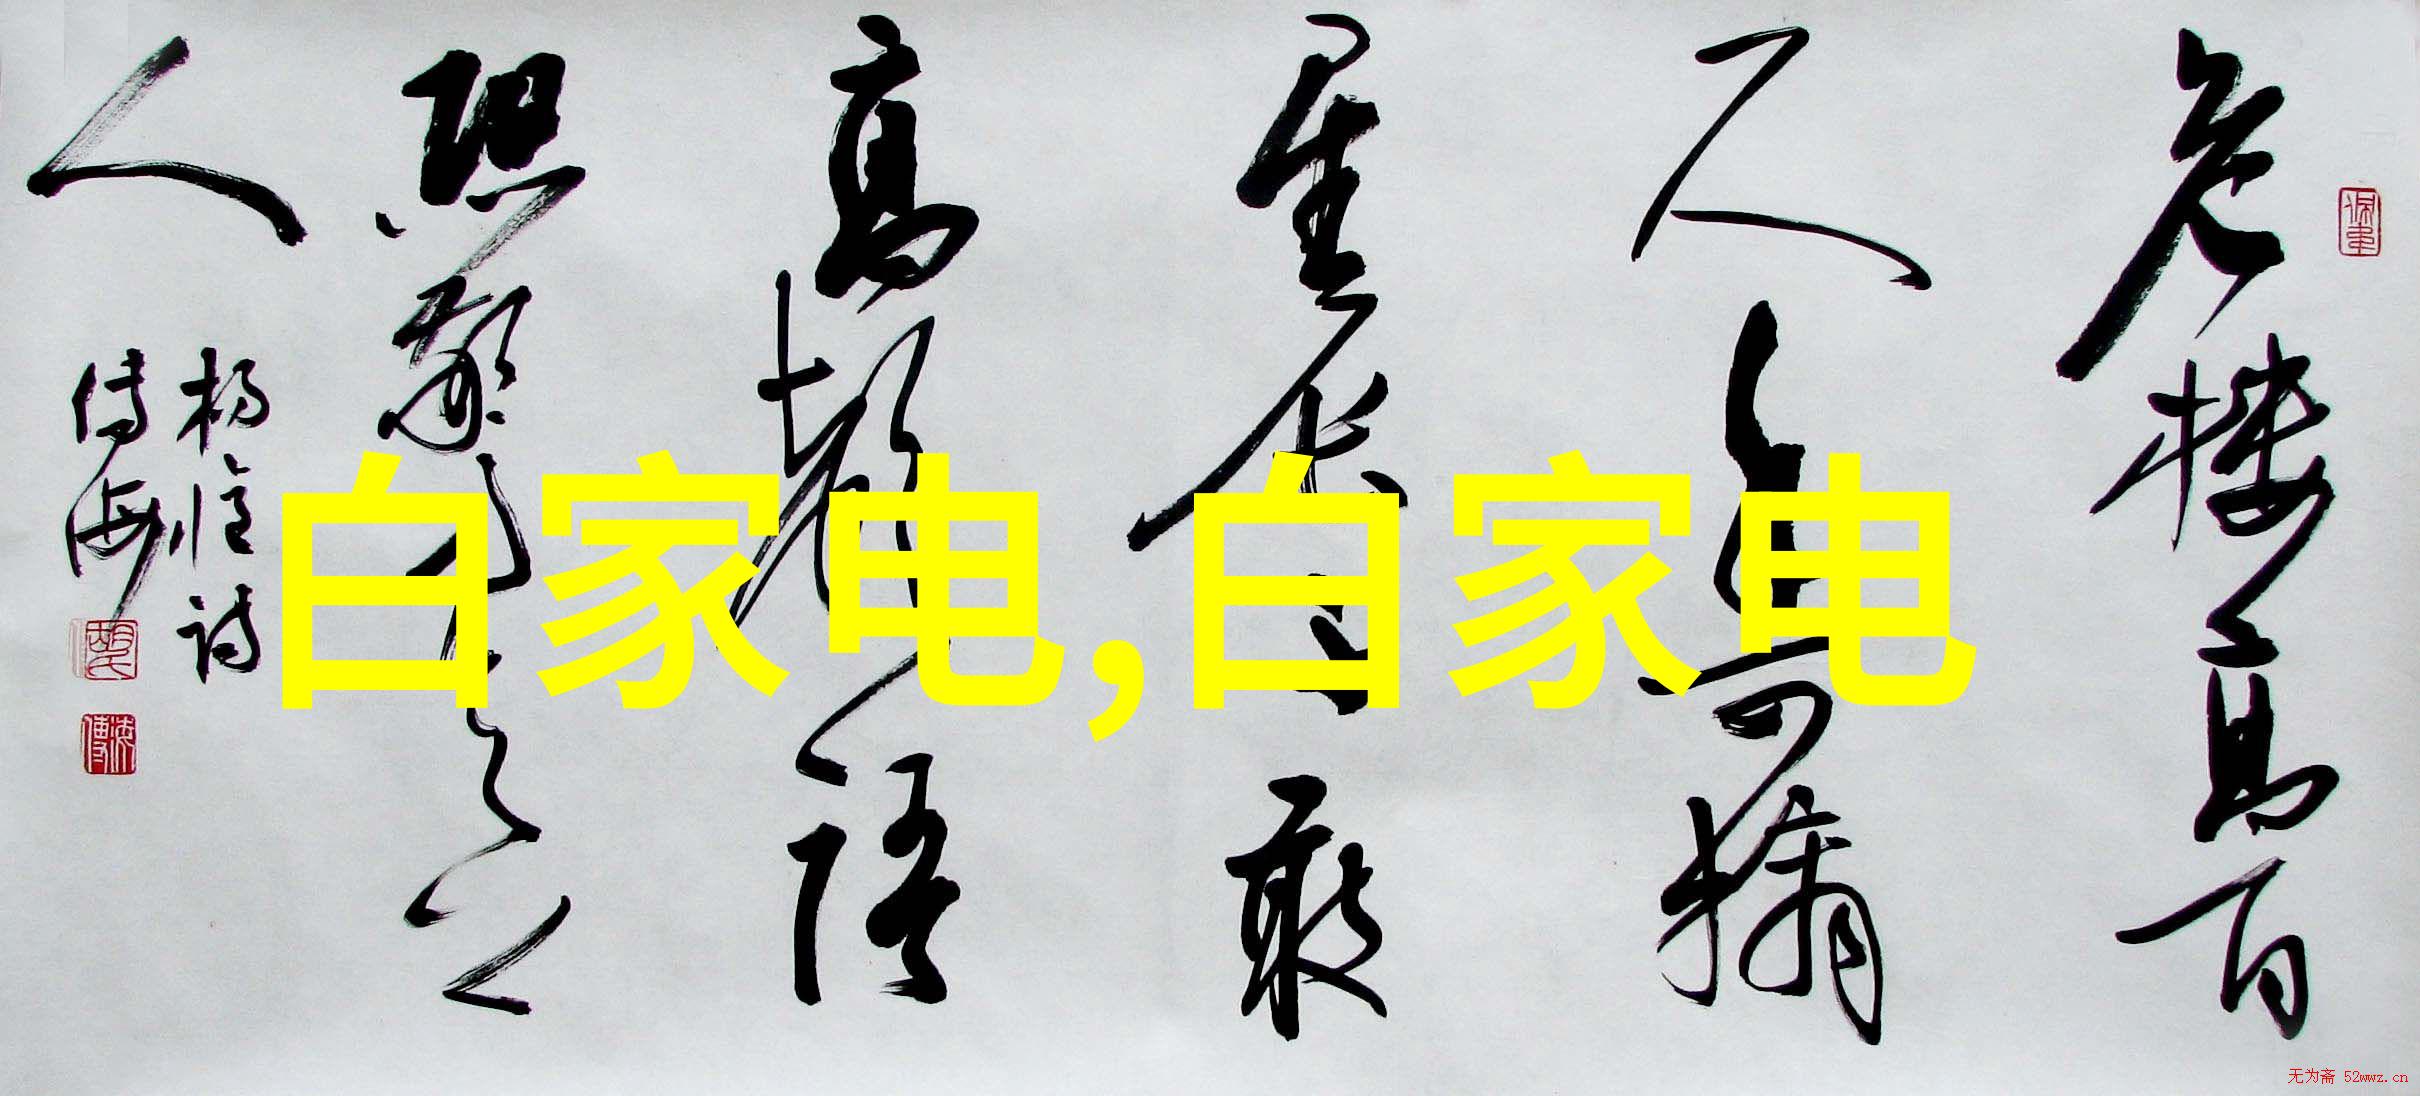 危楼高百
尺手可摘
星辰不敢
高声语
恐惊天上
人
杨億诗
传海
白家电,白家电
无为斋 52wwz.cn